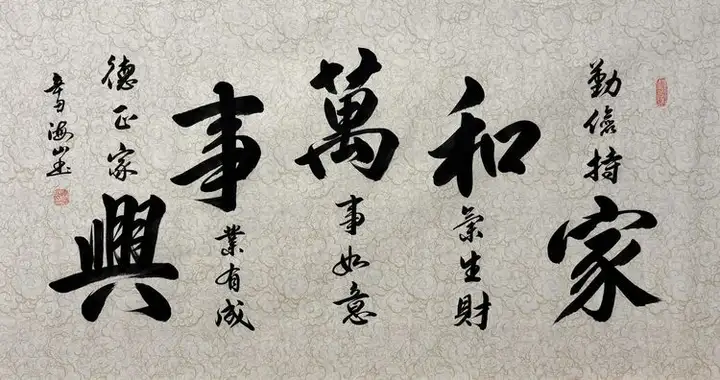 勤儉持家
和氣生財
萬事如意
事業有成
德正家興
書海山